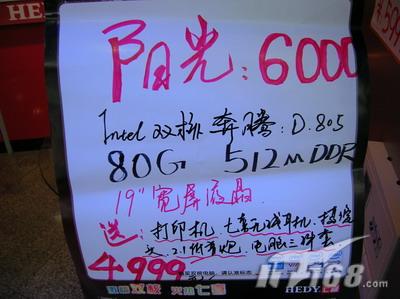 IT168.com
HED
阳光:6000
Intel 双核 奔腾:D.805
80G 512M DDR
19"宽屏液晶
送:打印机、七喜无线耳机、摄像
头、2.1低音炮、电脑三件套
4999
HEDY